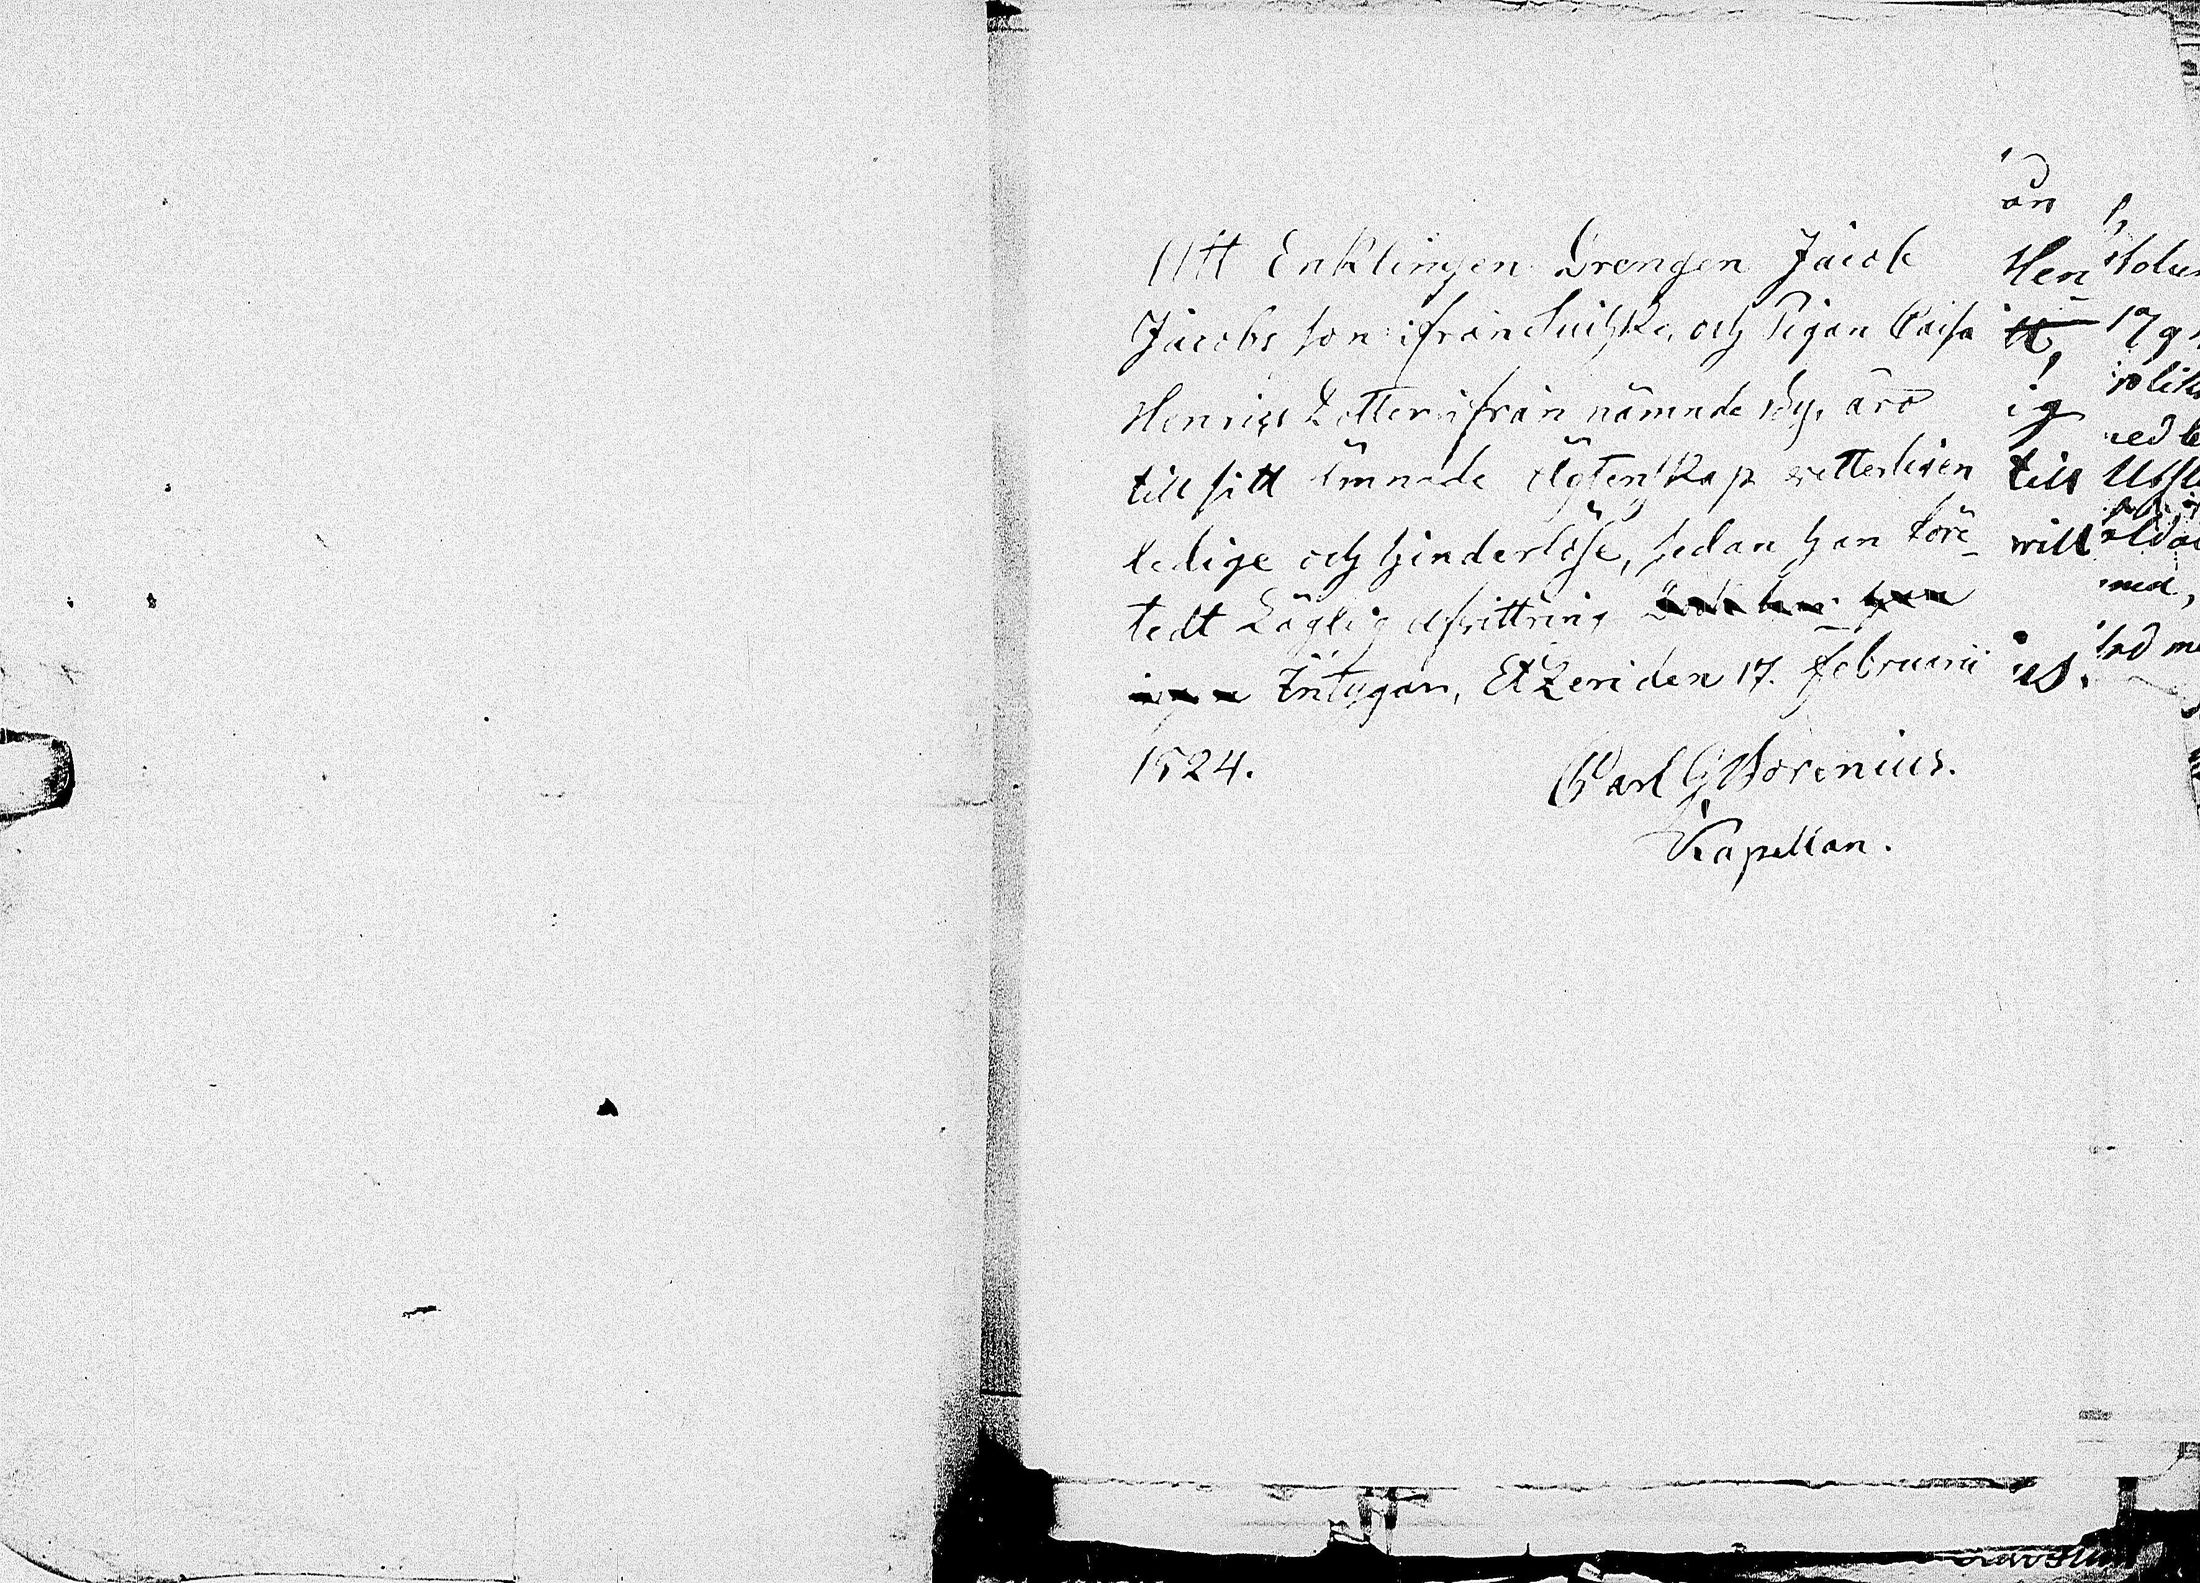 Att Enklingen Drengen Jacob
Jacobs son ifrån Suiska, och Pigan Caisa
Henrics Dotter ifrån nämnde By, äro
till sitt ämnade Ägtenskap vetterligen
ledige och hinderlöse, sedan han före-
tedt Laglig afvittring
Intygar, Etzeri den 17. Februarii
1824.
Carl G Borenius.
Kapellan.
än
Hen
tt,
ig
till
will
us.